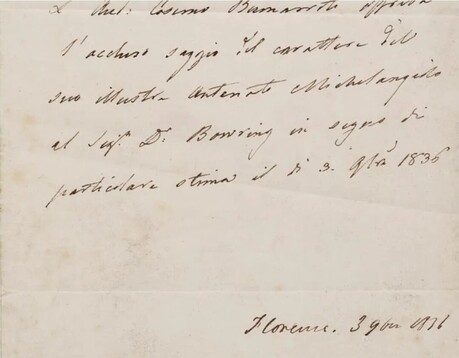 Il Auct: Cosimo Buonarroti offrisce
l'accluso saggio del carattere del
suo illustre Antenato Michelangelo
al Sigr. Dr. Bowring in segno di
particolare stima il dì 3. 9bre 1836
Florence. 3 9bre 1836